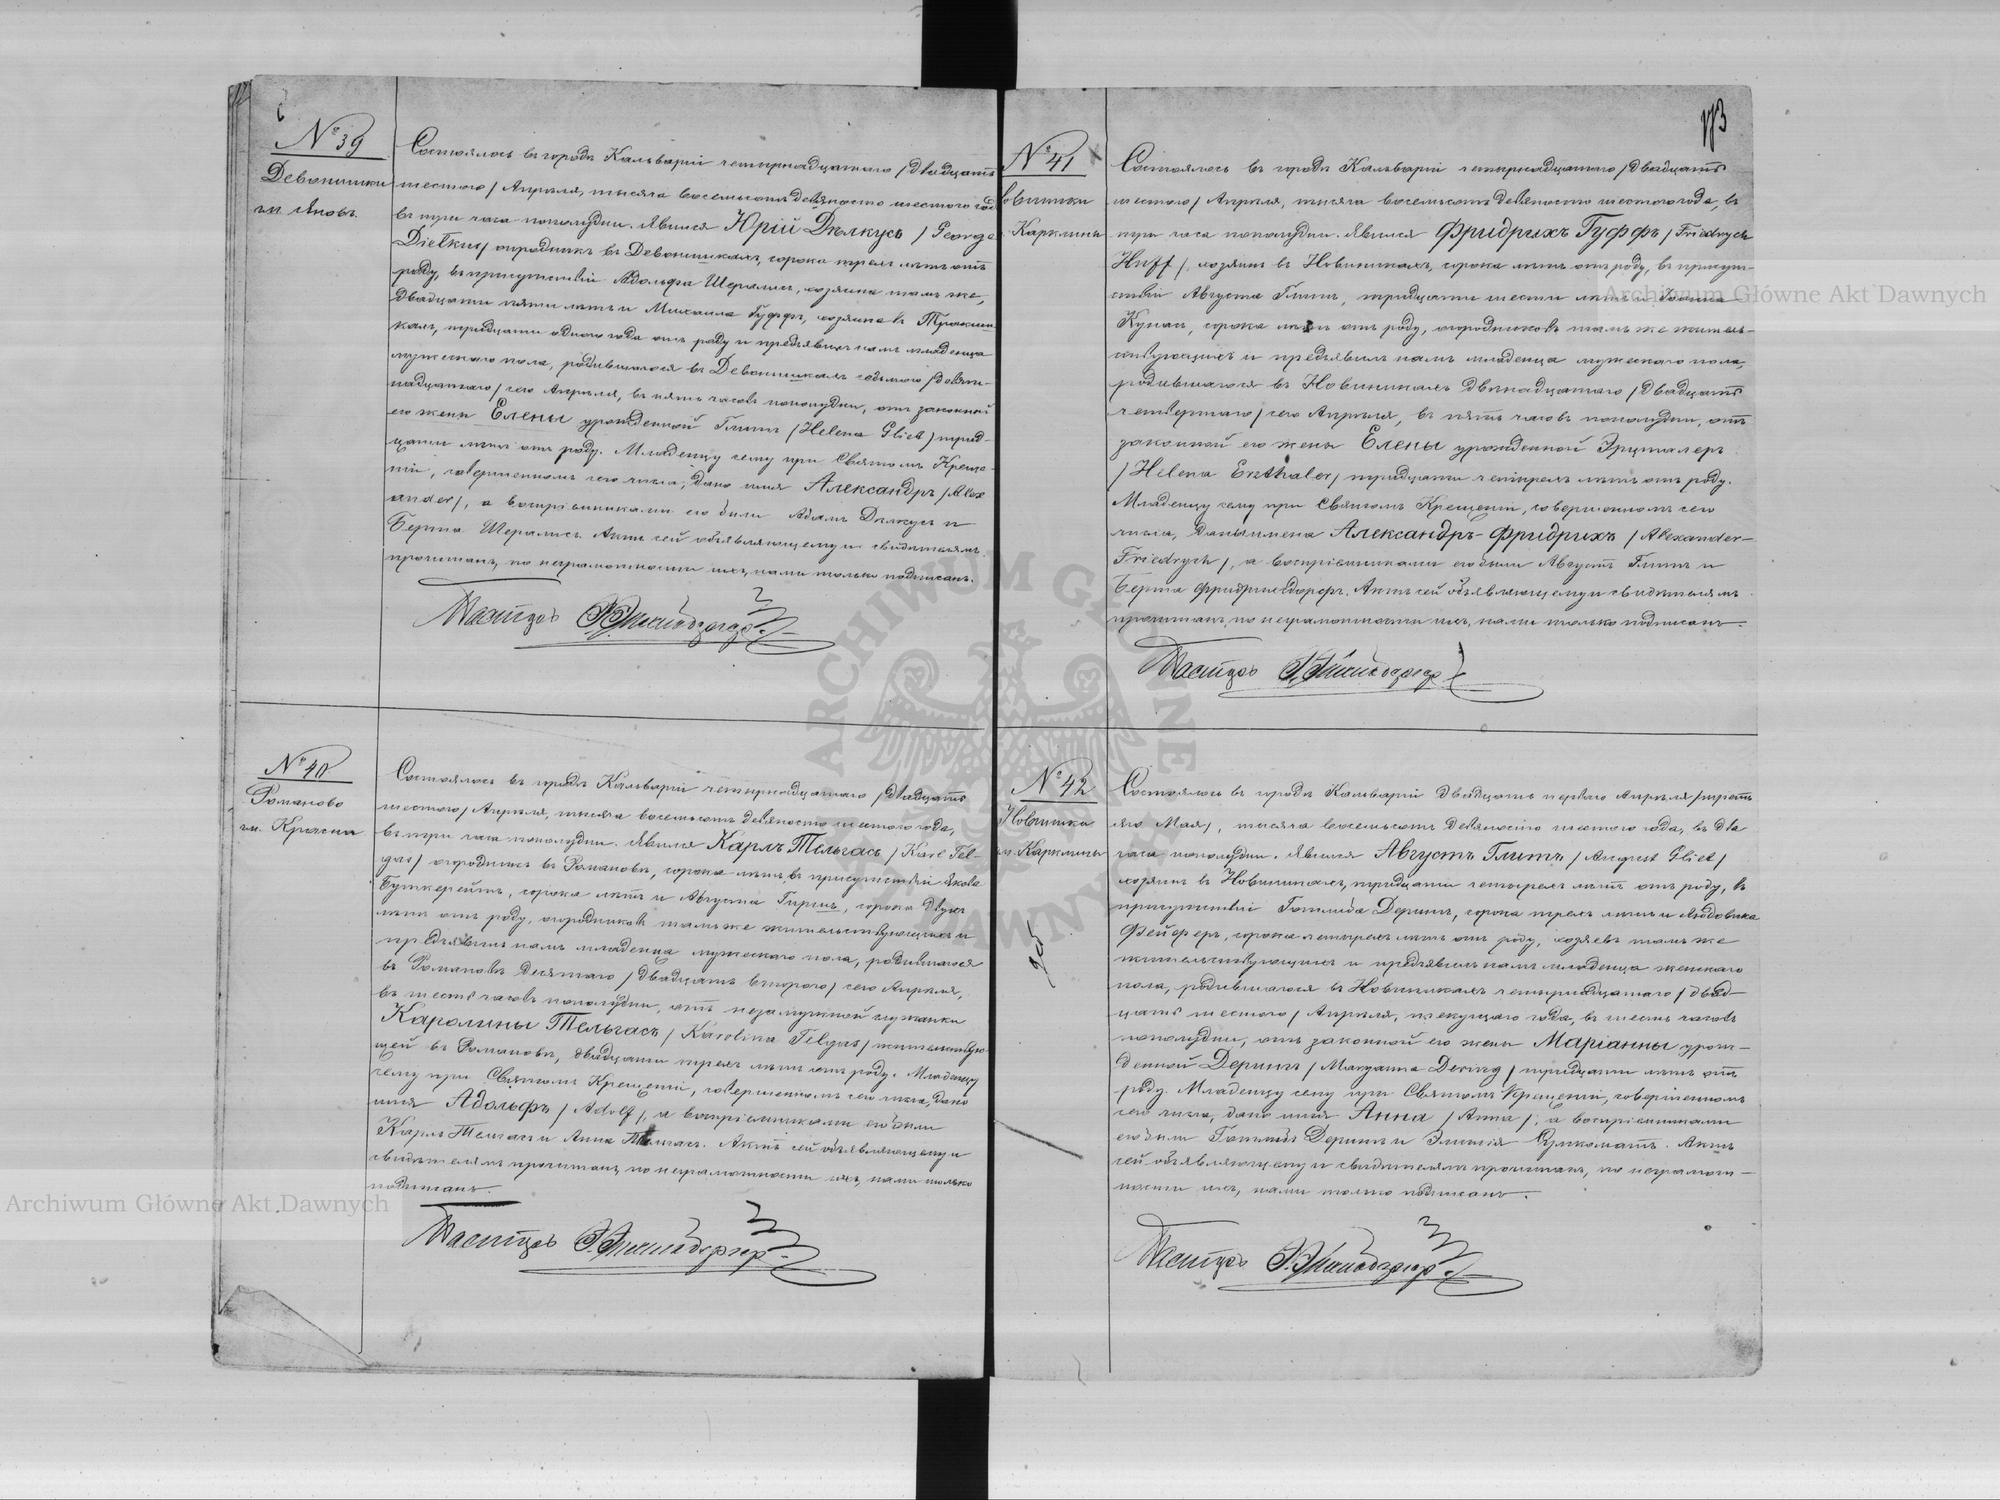 № 39
Девонишки
гм. Яновъ.
Состоялось въ городѣ Кальваріи четырнадцатаго /двадцать
шестого/ Апрѣля, тысяча восемьсотъ девяносто шестого года
въ три часа пополудни. Явился Юрій Дѣлкусъ / George
Dielkus/ огородникъ въ Девонишкахъ, сорока трехъ лѣтъ отъ
роду, въ присутствіи Адольфа Шералисъ, хозяина тамъ же,
двадцати пяти лѣтъ и Михаила Гуффъ, хозяина въ
кахъ, тридцати одного года отъ роду и предъявилъ намъ младенца
мужескаго пола, родившагося въ Девонишкахъ седьмого /девят-
надцатаго/ сего Апрѣля, въ пять часовъ пополудни, отъ законной
его жены Елены урожденной Глитъ /Helena Gliet/ трид-
цати лѣтъ отъ роду. Младенцу сему при Святомъ Креще-
ніи, совершенномъ сего числа, дано имя Александръ /Alex
ander/, а воспріемниками его были Адамъ Дѣлкусъ и
Берта Шералисъ. Актъ сей объявляющему и свидѣтелямъ
прочитанъ, по неграмотности ихъ, нами только подписанъ.
Пасторъ
№ 40
Романово
гм. Красна
Состоялось въ городѣ Кальваріи четырнадцатаго /двадцать
шестого/ Апрѣля, тысяча восемьсотъ девяносто шестого года,
въ три часа пополудни. Явился Карлъ Тельгасъ /Karl Tel-
gas/ огородникъ въ Романовѣ, сорока лѣтъ, въ присутствіи Якова
сорока лѣтъ и Августа Гиршъ, сорока двухъ
лѣтъ отъ роду, огородниковъ тамъ же жительствующихъ и
предъявилъ намъ младенца мужескаго пола, родившагося
въ Романовѣ десятаго /двадцать второго/ сего Апрѣля,
въ шесть часовъ пополудни, отъ незамужней служанки
Каролины Тельгасъ /Karolina Telgas/ жительствую-
щей въ Романовѣ, двадцати трехъ лѣтъ отъ роду. Младенцу
сему при Святомъ Крещеніи, совершенномъ сего числа, дано
имя Адольфъ /Adolf/, а воспріемниками его были
Карлъ Тельгасъ и Анна Тельгасъ. Актъ сей объявляющему и
свидѣтелямъ прочитанъ, по неграмотности ихъ, нами только
подписанъ.
Пасторъ
№ 41
овиники
Карклины
Состоялось въ городѣ Кальваріи четырнадцатаго /двадцать
шестого/ Апрѣля, тысяча восемьсотъ девяносто шестого года, въ
три часа пополудни. Явился Фридрихъ Гуффъ /Friedrych
Huff/, хозяинъ въ Новиникахъ, сорока лѣтъ отъ роду, въ присут-
ствіи Августа Глитъ, тридцати шести лѣтъ и
Кунасъ, сорока лѣтъ отъ роду, огородниковъ тамъ же житель-
ствующихъ и предъявилъ намъ младенца мужескаго пола,
родившагося въ Новиникахъ двѣнадцатаго /двадцать
четвертаго/ сего Апрѣля, въ пять часовъ пополудни, отъ
законной его жены Елены урожденной Эрцталеръ
/Helena Erzthaler/ тридцати четырехъ лѣтъ отъ роду.
Младенцу сему при Святомъ Крещеніи, совершенномъ сего
числа, даны имена Александръ-Фридрихъ /Alexander-
Friedrych/, а воспріемниками его были Августъ Глитъ и
Берта Фридрихсдорфъ. Актъ сей объявляющему и свидѣтелямъ
прочитанъ, по неграмотности ихъ, нами только подписанъ.
Пасторъ
№ 42
Новиники
гм. Карклины
Состоялось въ городѣ Кальваріи двадцать перваго Апрѣля /треть
яго Мая/, тысяча восемьсотъ девяносто шестого года, въ два
часа пополудни. Явился Августъ Глитъ /August Gliet/
хозяинъ въ Новиникахъ, тридцати четырехъ лѣтъ отъ роду, въ
присутствіи Готлиба Дерингъ, сорока трехъ лѣтъ и Людовика
Фейферъ, сорока четырехъ лѣтъ отъ роду, хозяевъ тамъ же
жительствующихъ и предъявилъ намъ младенца женскаго
пола, родившагося въ Новиникахъ четырнадцатаго /двад-
цать шестого/ Апрѣля, текущаго года, въ шесть часовъ
пополудни, отъ законной его жены Маріанны урож-
денной Дерингъ /Maryanna Dering/ тридцати лѣтъ отъ
роду. Младенцу сему при Святомъ Крещеніи, совершенномъ
сего числа, дано имя Анна /Anna/, а воспріемниками
ею были Готлибъ Дерингъ и Эмилія Актъ
сей объявляющему и свидѣтелямъ прочитанъ, по неграмот-
ности ихъ, нами только подписанъ.
Пасторъ
Archiwum Główne Akt Dawnych
Archiwum Główne Akt Dawnych
ARCHIWUM GŁÓWNE AKT DAWNYCH